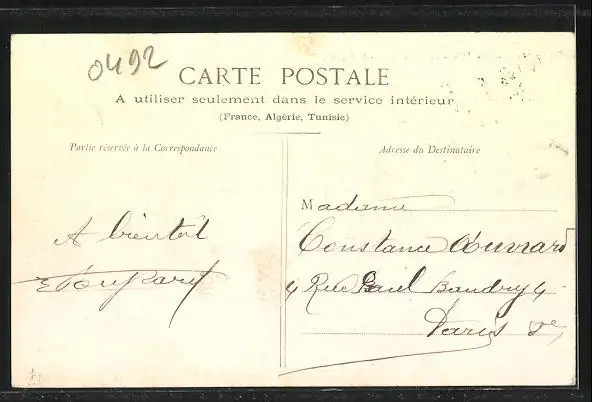 0492
CARTE POSTALE
A utiliser seulement dans le service intérieur
(France, Algérie, Tunisie)
Partie réservée à la Correspondance
Adresse du Destinataire
A bientôt
Madame
Constance Ouvrard
4 Rue Paul Baudry 4
Paris 8e